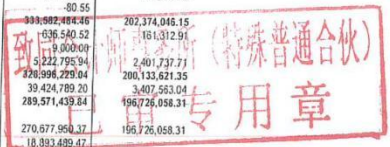 -80.55
333,582,484.46 202,374,046.15
636,540.52 161,312.91
9,000.00
5,222,795.94 2,401,737.71
328,996,229.04 200,133,621.35
39,424,789.20 3,407,563.04
289,571,439.84 196,726,058.31
270,677,950.37 196,726,058.31
18,893,489.47
致同 师 所（特殊普通合伙）
审专用章